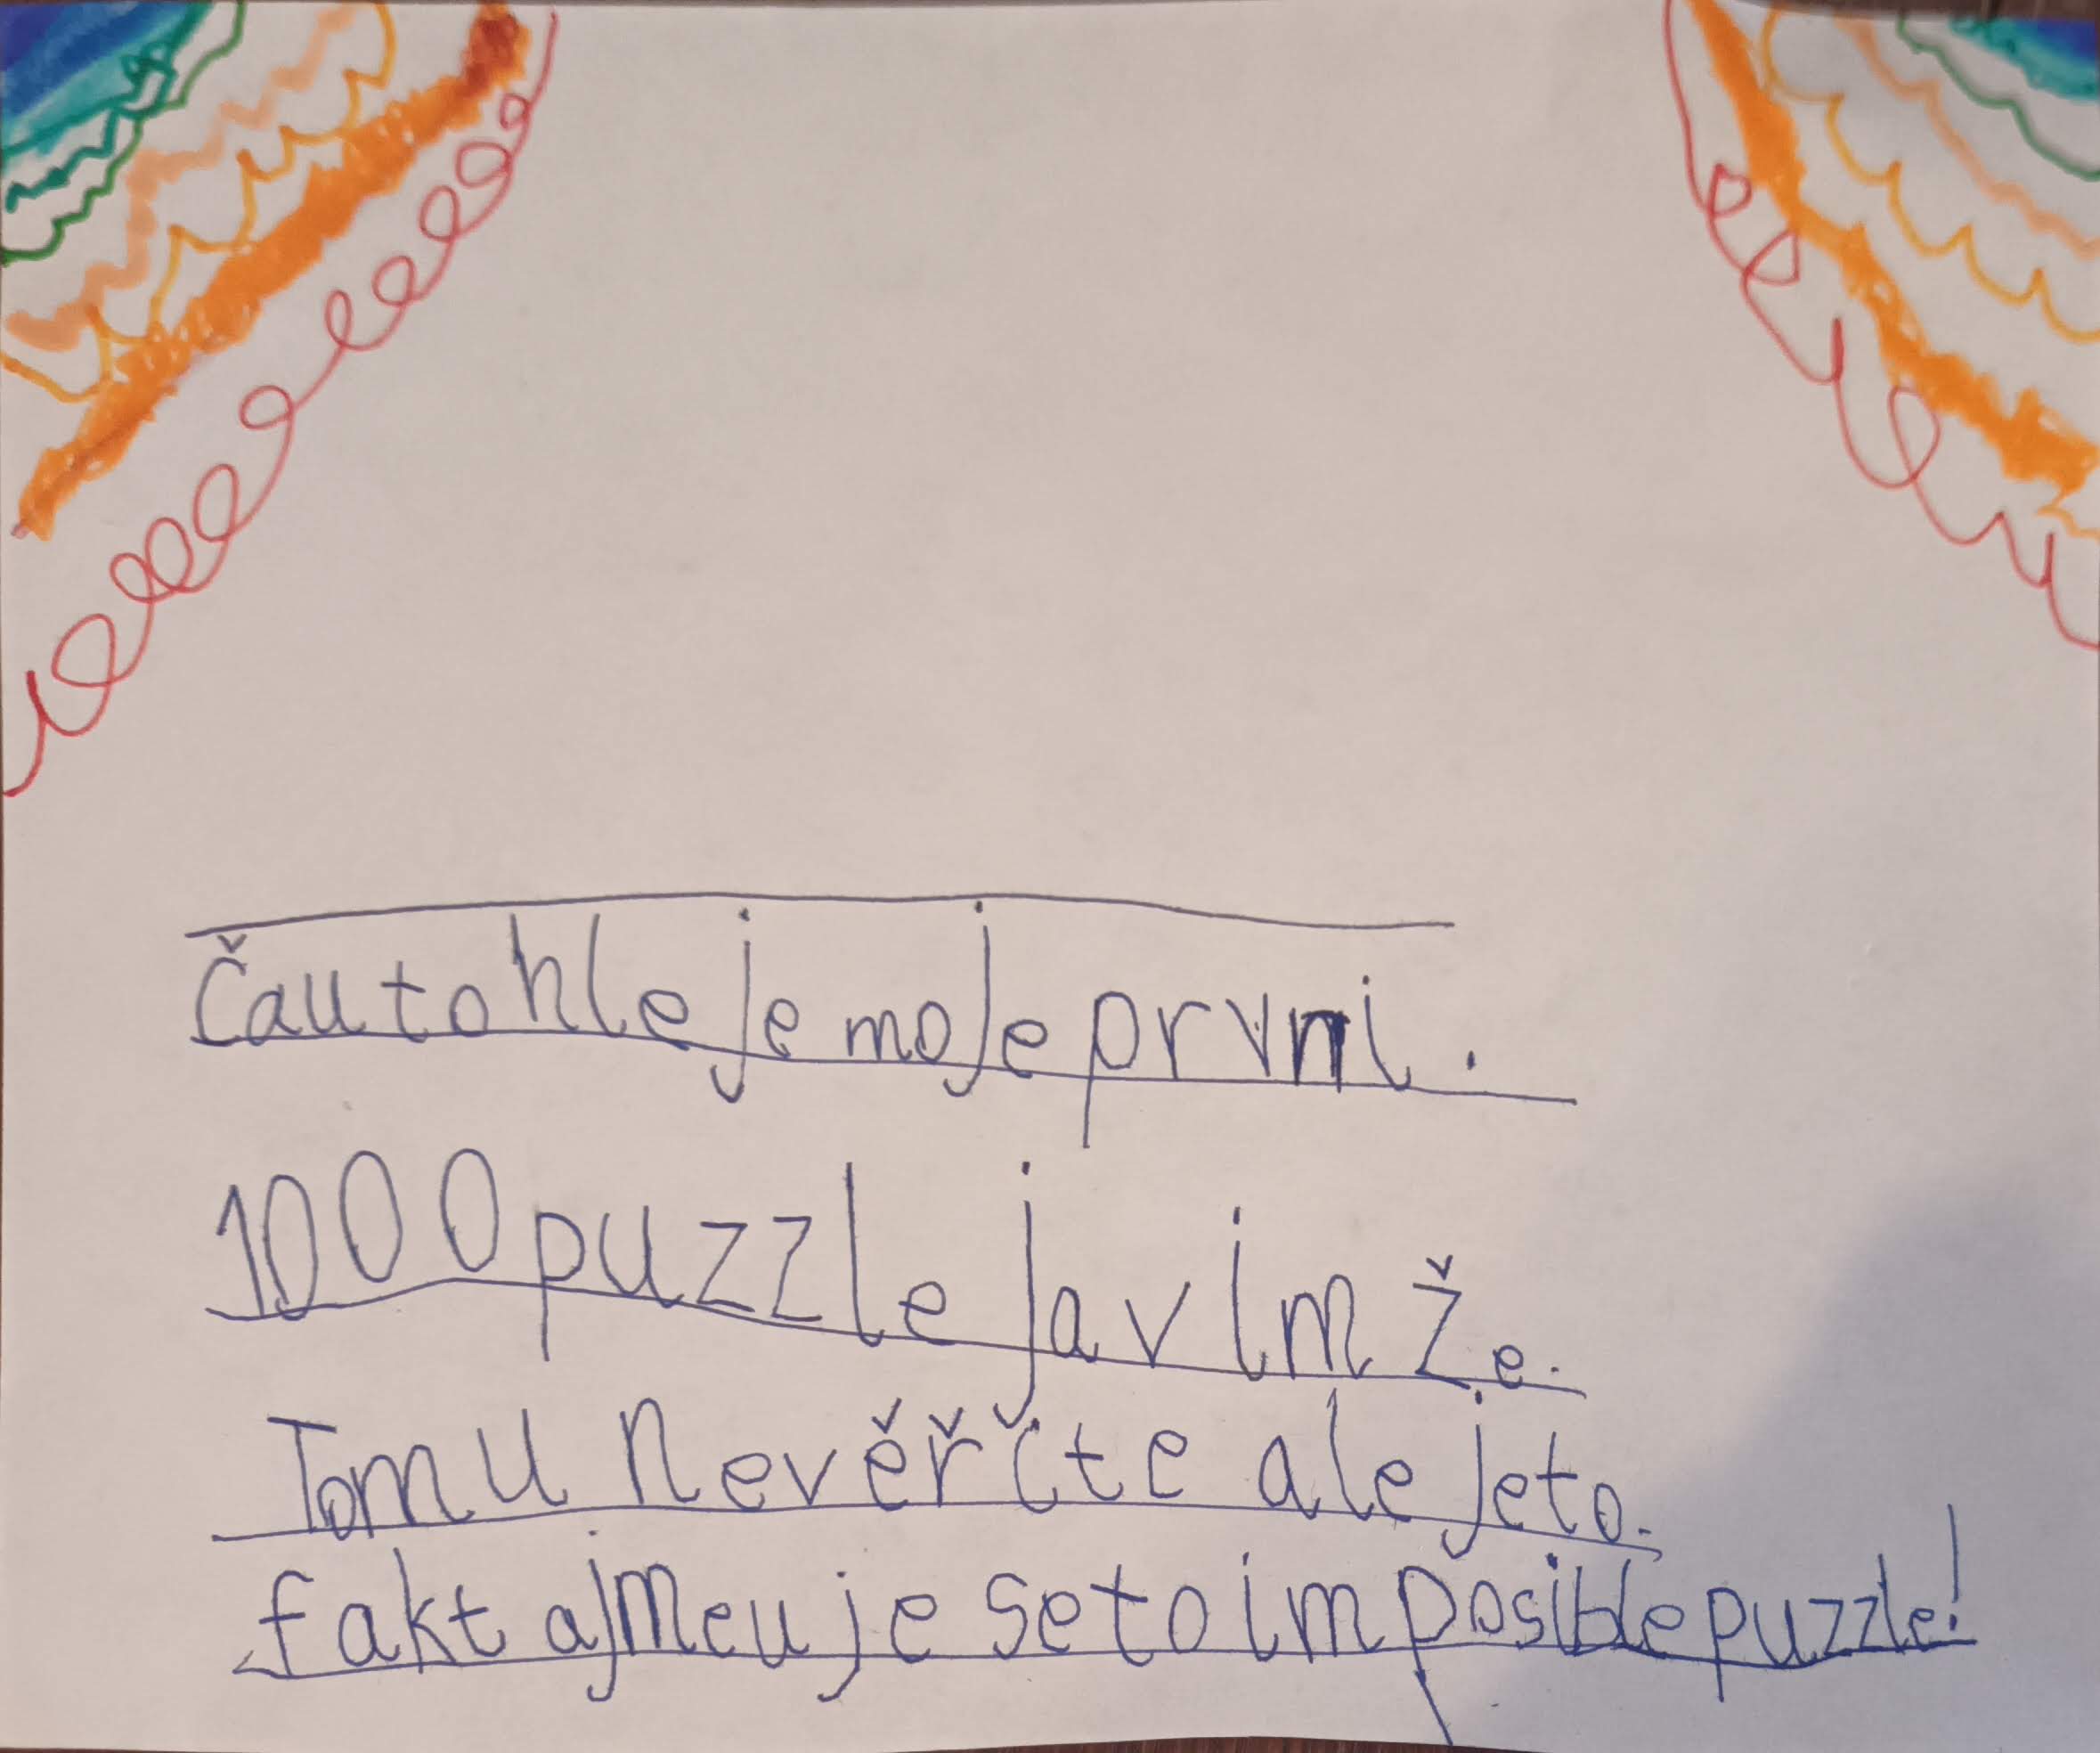 Čau tohle je moje prvni.
1000 puzzle ja vim že.
Tomu nevěřite ale je to.
fakt a jmeuje se to imposible puzzle!